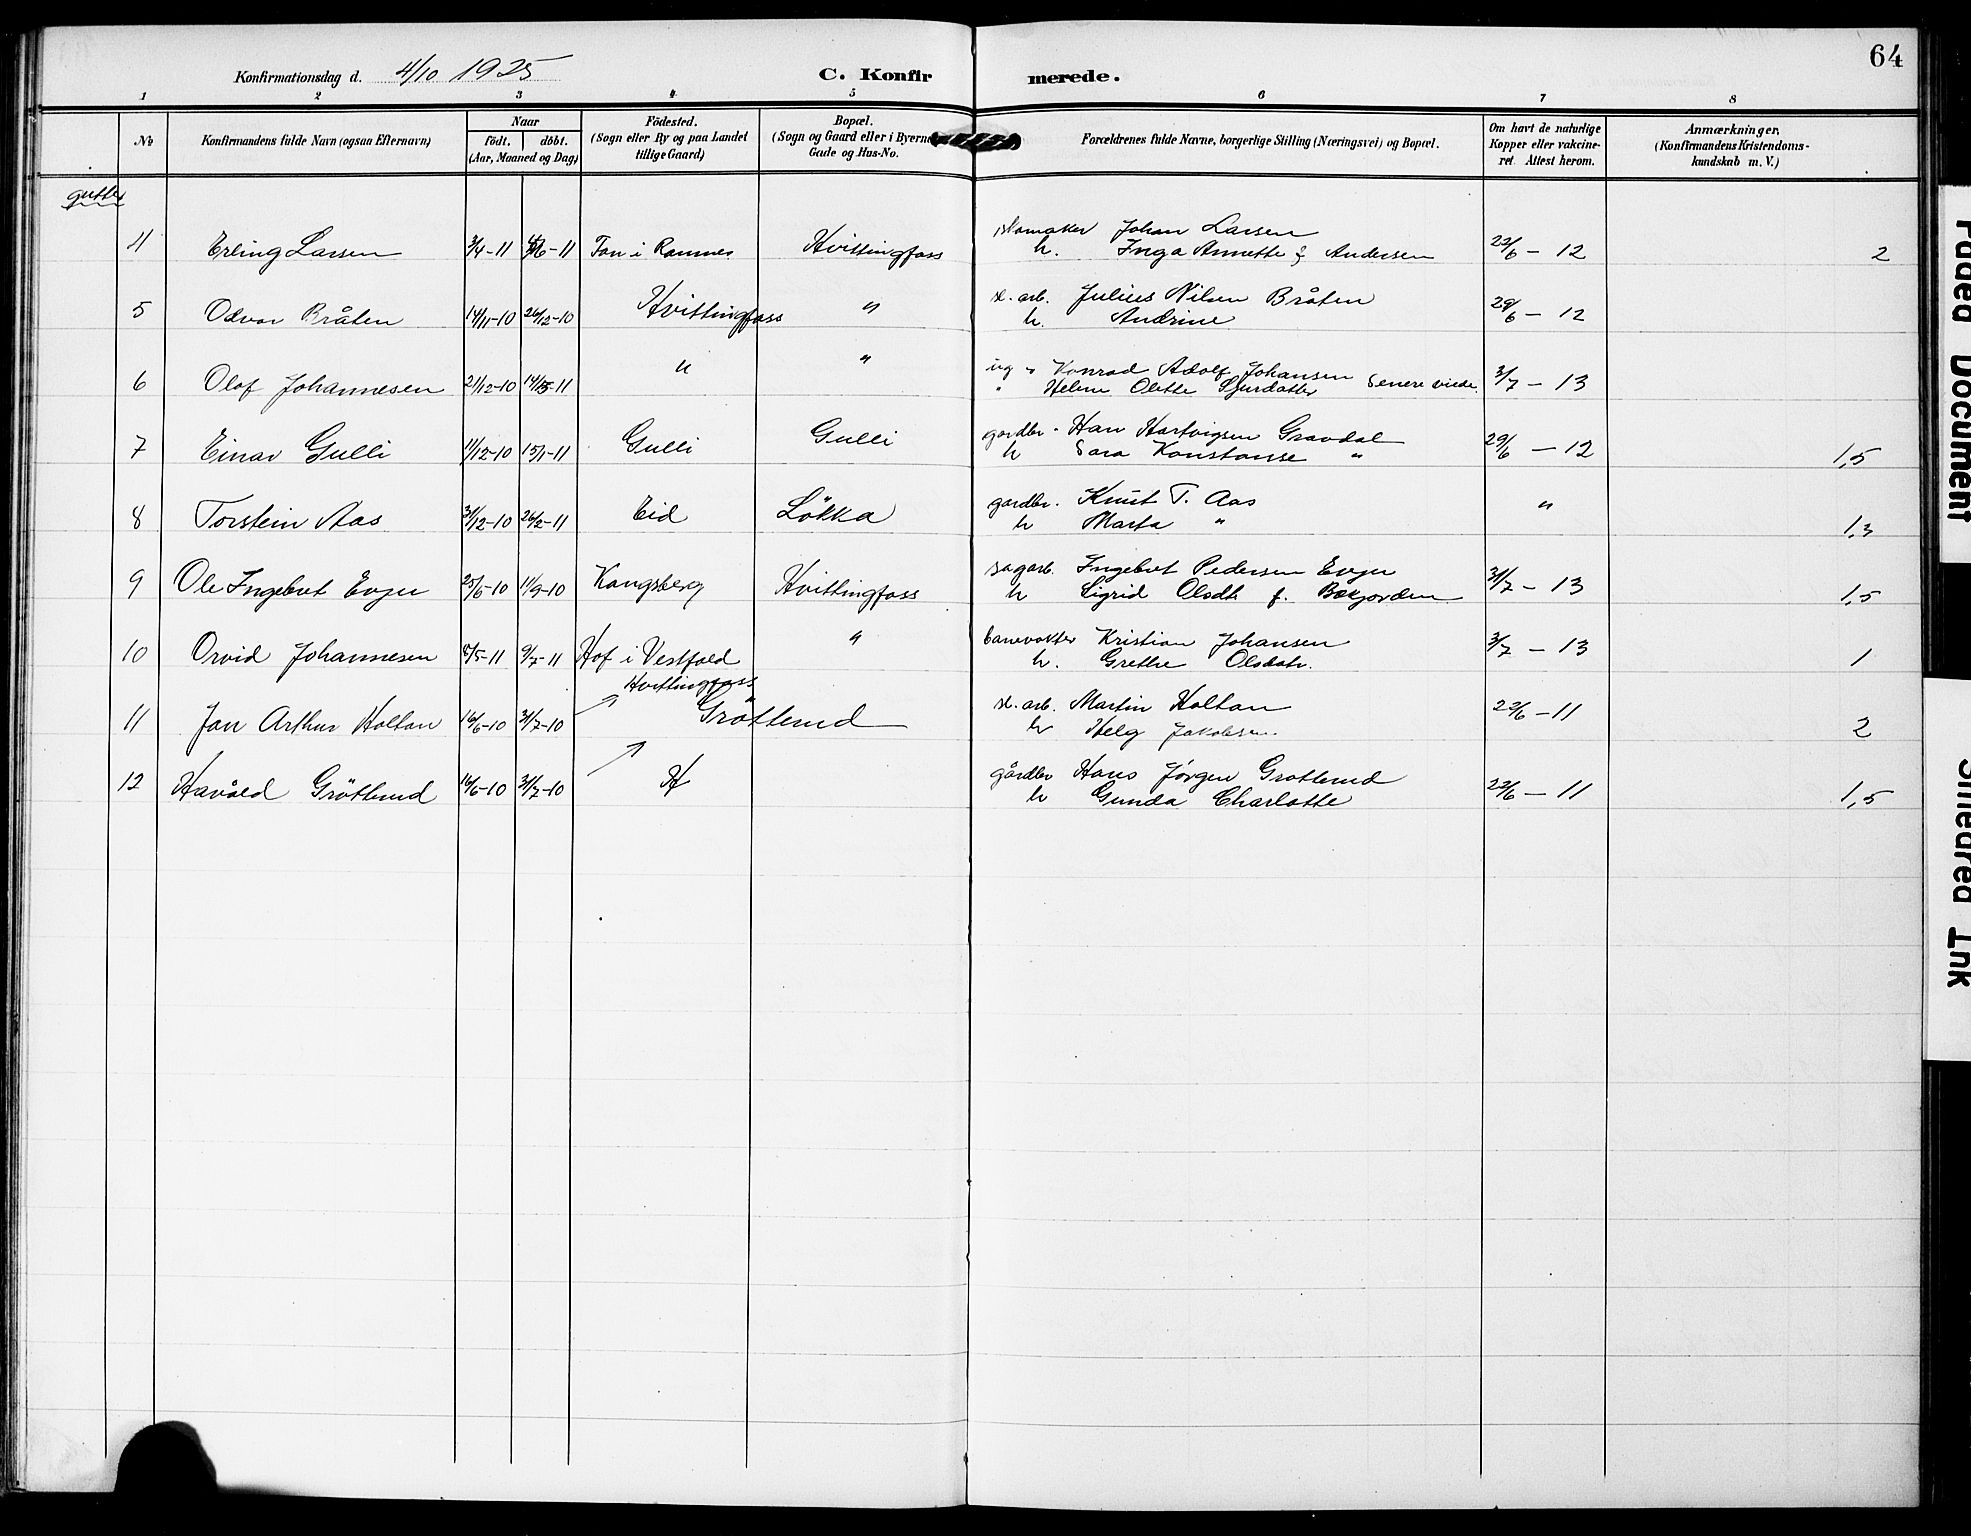 64
Konfirmationsdag d. 4/10 1925 C. Konfirmerede.
1 2 3 4 5 6 7 8
No
Konfirmandens fulde Navn (ogsaa Efternavn)
Naar
födt. döbt.
(Aar, Maaned og Dag)
Födested.
(Sogn eller By og paa Landet
tillige Gaard)
Bopæl.
(Sogn og Gaard eller i Byerne
Gade og Hus-No.
Forældrenes fulde Navne, borgerlige Stilling (Næringsvei) og Bopæl.
Om havt de naturlige
Kopper eller vakcine-
ret. Attest herom.
Anmærkninger,
(Konfirmandens Kristendoms-
kundskab m. V.)
gutter
4 Erling Larsen 3/4-11 /6-11 Fon i Ramnes Hvittingfoss skomaker Johan Larsen 22/6 - 12 2
h. Inga Annette f. Andersen
5 Odvar Bråten 14/11-10 26/12-10 Hvittingfoss " sl. arb. Julius Nilsen Bråten 29/6 - 12
h. Andrine
6 Olaf Johannesen 21/12-10 -11 " " ug " Konrad Adolf Johansen 3/7 - 13
" Helene Olette Sjurdatter Senere viede.
7 Einar Gulli 11/12-10 15/1-11 Gulli Gulli gardbr. Hans Hartvigsen Gravdal 29/6 - 12 1,5
h Sara Konstanse "
8 Torstein Aas 31/12-10 26/2-11 Eid Lökka gardbr. Knut T. Aas " 1,3
h Marta "
9 Ole Ingebret Evju 25/6-10 11/9-10 Kongsberg Hvittingfoss sagarb. Ingebret Pedersen Evju 31/7 - 13 1,5
h Sigrid Olsdt. f. Bækjorden
10 Arvid Johannesen 8/5-11 9/7-11 Hof i Vestfold " banevokter Kristian Johansen 3/7 - 13 1
h. Grethe Olsdatr.
11 Jan Arthur Holtan 16/6-10 31/7-10 Hvittingfoss Grötterud sl. arb. Martin Holtan 22/6 - 11 2
h Helg Jakobsen.
12 Havåld Grötterud 16/6-10 31/7-10 H gårdbr Hans Jørgen Grotterud 23/6 - 11 1,5
h Gunda Charlotte
Faded Document
Smeared Ink